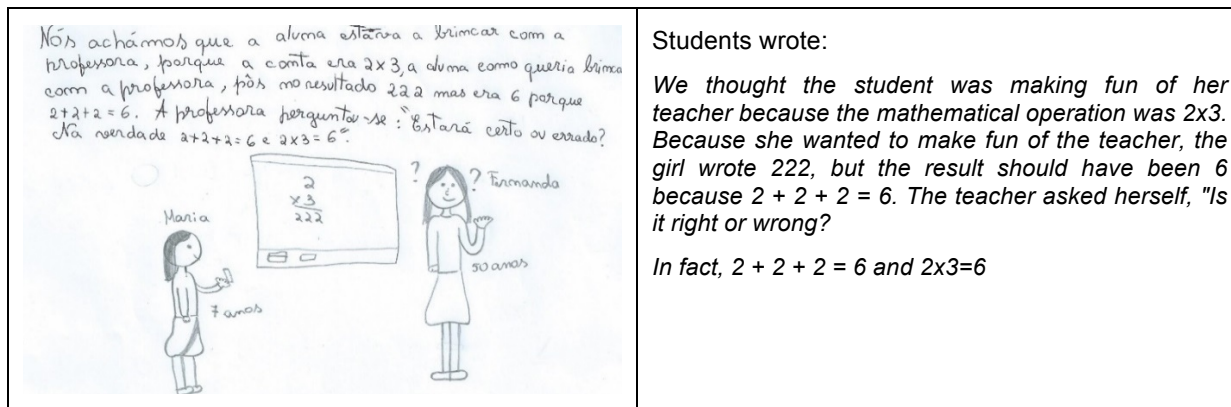 Nós achámos que a aluna estava a brincar com a
professora, porque a conta era 2x3, a aluna como queria brinca
com a professora, pôs no resultado 222 mas era 6 porque
2+2+2=6. A professora pergunta-se: "Estará certo ou errado?
Na verdade 2+2+2=6 e 2x3=6".
Maria
7 anos
2
x3
222
? ? Fernanda
50 anos
Students wrote:
We thought the student was making fun of her
teacher because the mathematical operation was 2x3.
Because she wanted to make fun of the teacher, the
girl wrote 222, but the result should have been 6
because 2 + 2 + 2 = 6. The teacher asked herself, "Is
it right or wrong?
In fact, 2 + 2 + 2 = 6 and 2x3=6